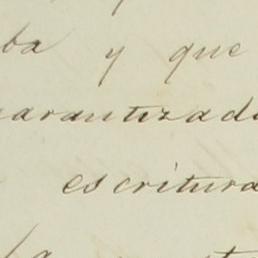 ba y que
garantizad
escritura